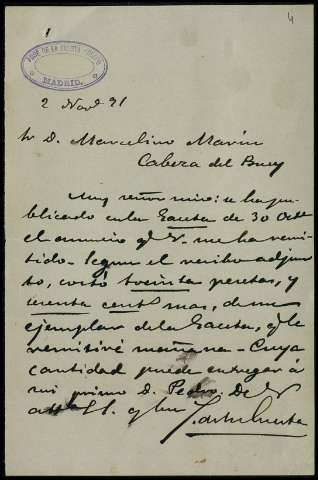 4
1
JOSÉ DE LA
MADRID.
2 Nov.e 91
Sr D. Marcelino Marin
Cabeza del Buey
Muy señor mio: se ha pu-
blicado en la Gaceta de 30 Octe
el anuncio q.e V. me ha remi-
tido. Segun el recibo adjun-
to, costó treinta pesetas, y
cent.s mas, de un
ejemplar de la Gaceta, q.e le
remitiré mañana - Cuya
cantidad puede entregar á
mi primo D. Pedro. De V.
att.o S.S. q b s m
J. de la Cuesta